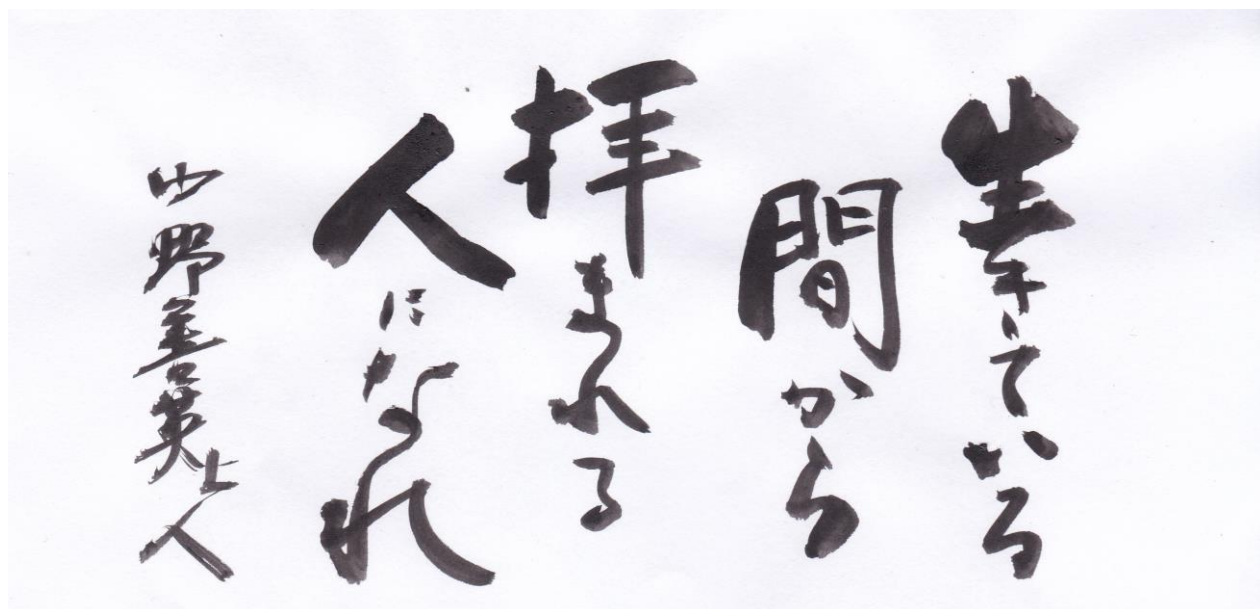 生きている
間から
拝まれる
人になれ
山野善英上人